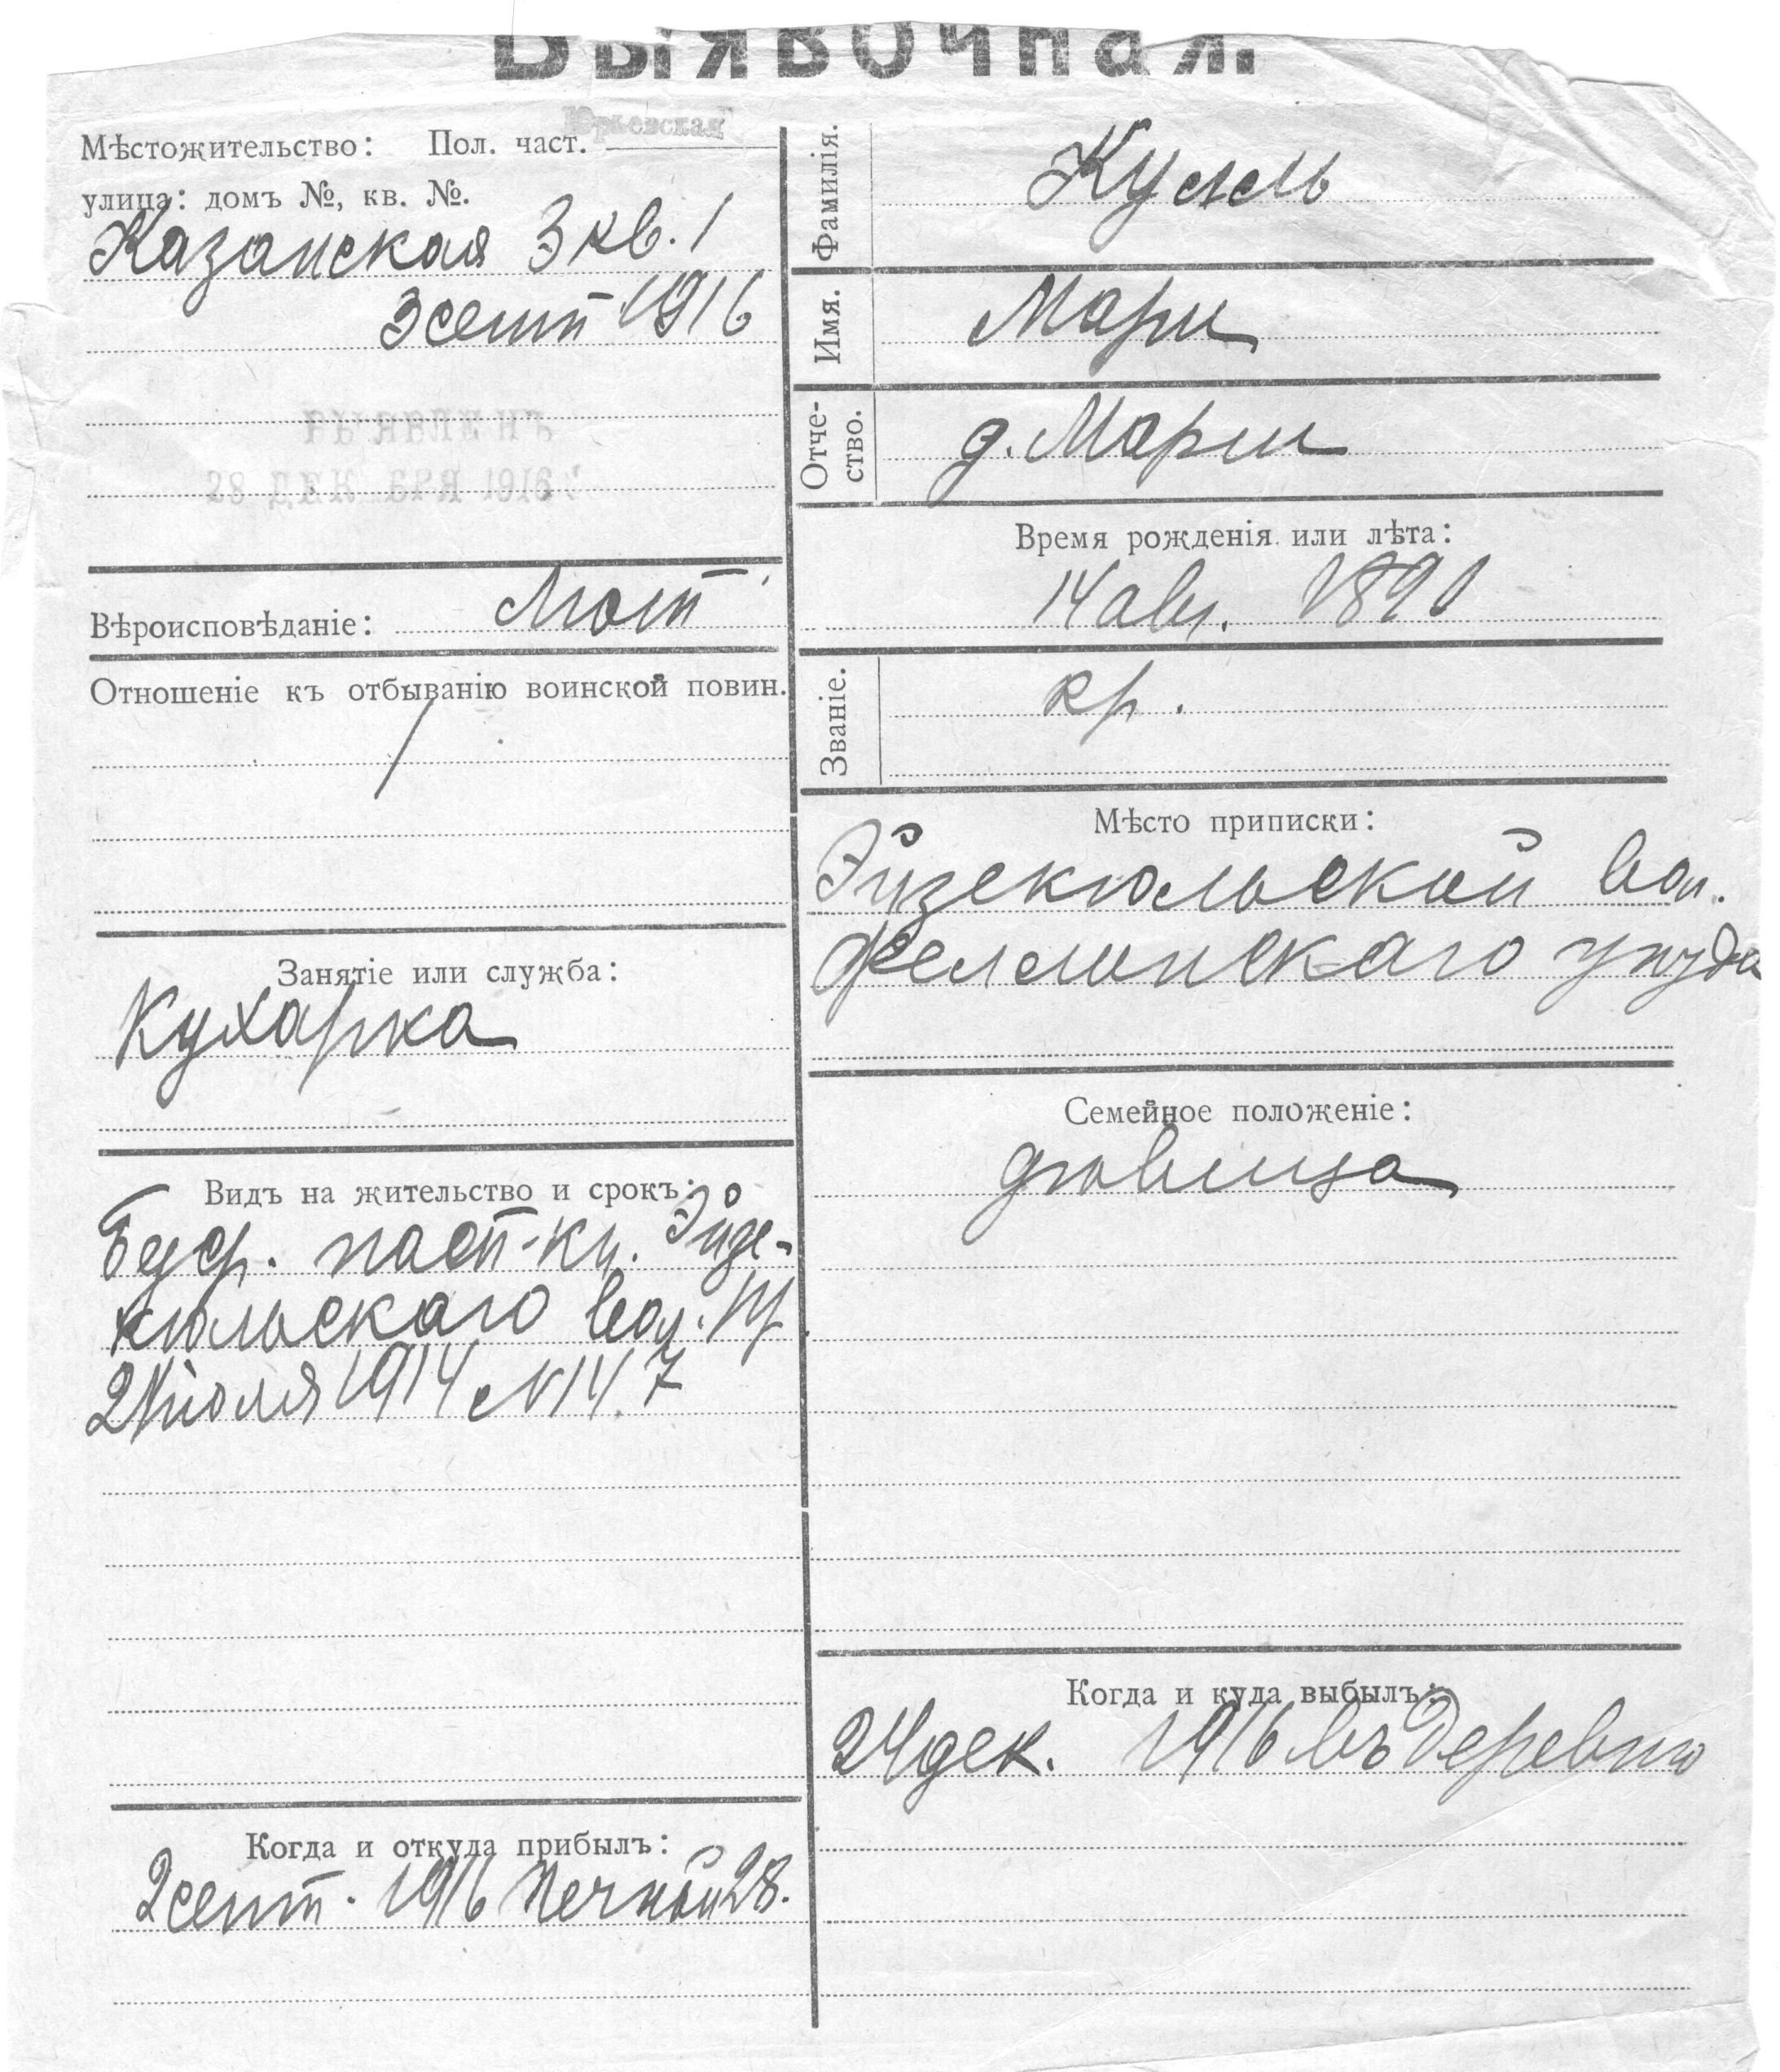 Выявочная.
Мѣстожительство: Пол. част. Юрьевская
улица: домъ №, кв. №.
Казанская 3 кв. 1
3 сент 1916
ВЫЯВЛЕНЪ
28 ДЕКАБРЯ 1916
Вѣроисповѣданіе: Лют
Отношеніе къ отбыванію воинской повин.
Занятіе или служба:
Кухарка
Видъ на жительство и срокъ:
Бүср. пасп. кн. Эйзе-
кюльскаго вол. Пр
2 Июля 1914 №147
Когда и откуда прибылъ:
2 сент. 1916 Печной 28.
Фамилія.
Кумль
Имя.
Мари
Отчество.
д. Мари
Время рожденія или лѣта:
14 авг. 1890
Званіе.
кр.
Мѣсто приписки:
Эйзекюльской вол.
Феллинскаго уѣзда
Семейное положеніе:
дѣвица
Когда и куда выбылъ:
24 дек. 1916 въ деревню